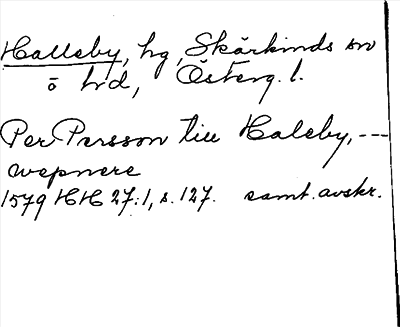 Halleby, hg, Skärkinds sn
o hd, Österg. l.
Per Persson till Haleby, ---
wepnere
1579 HH 27:1, s. 127. samt. avskr.